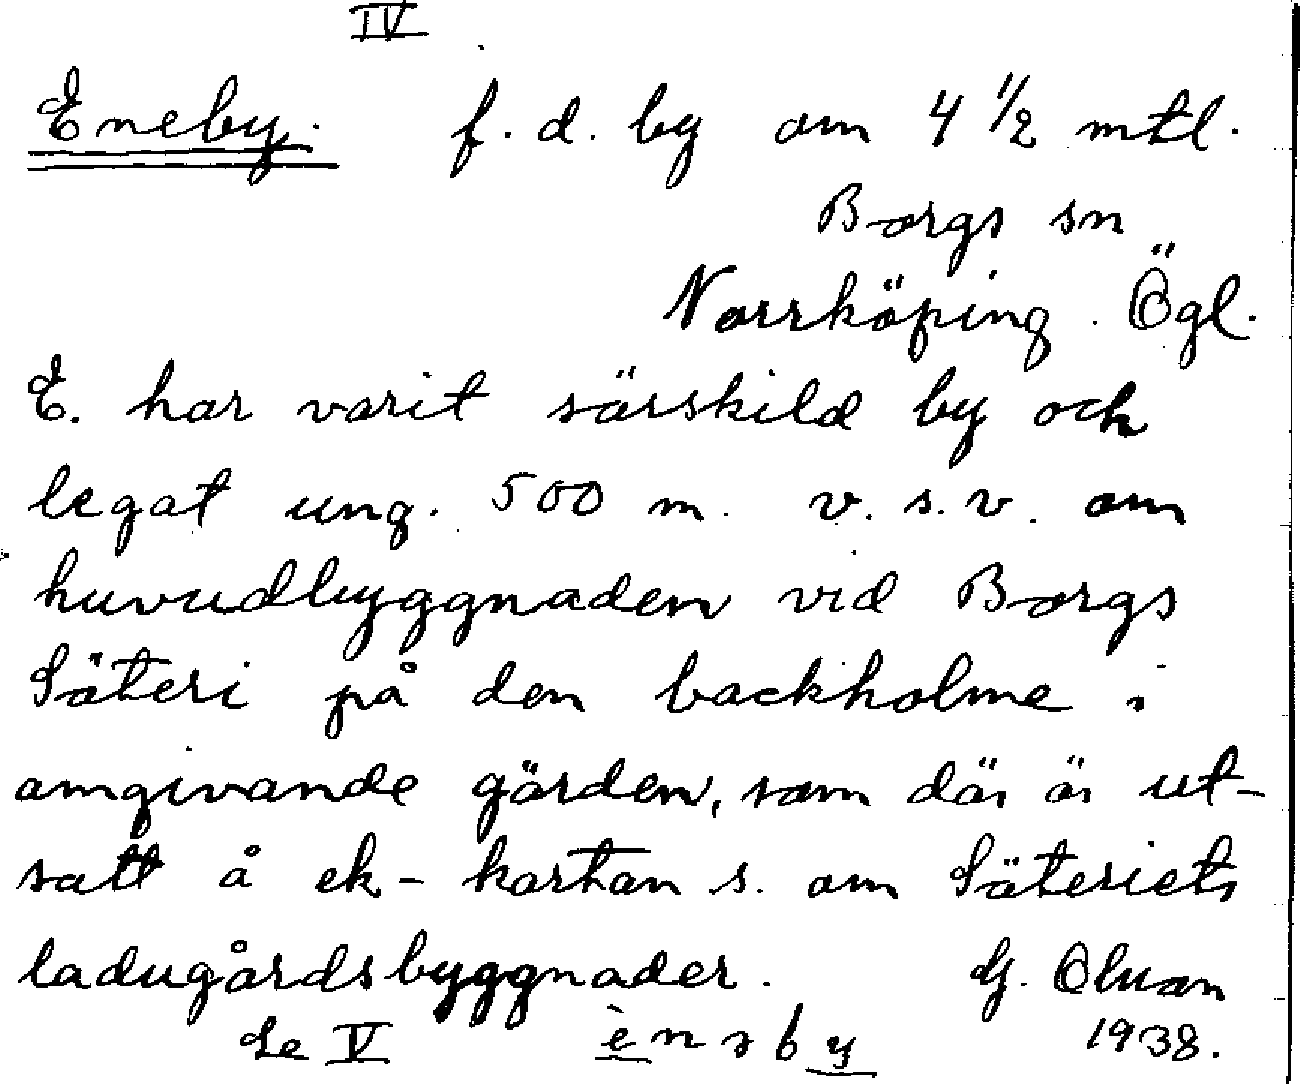 IV
Eneby. f. d. by om 4 1/2 mtl.
Borgs sn
Norrköping Ögl.
E. har varit särskild by och
legat ung. 500 m. v. s. v. om
huvudbyggnaden vid Borgs
Säteri på den backholme i
omgivande gärden, som där är ut-
satt å ek-kartan s. om Säteriets
ladugårdsbyggnader. G.
Se V 1938.